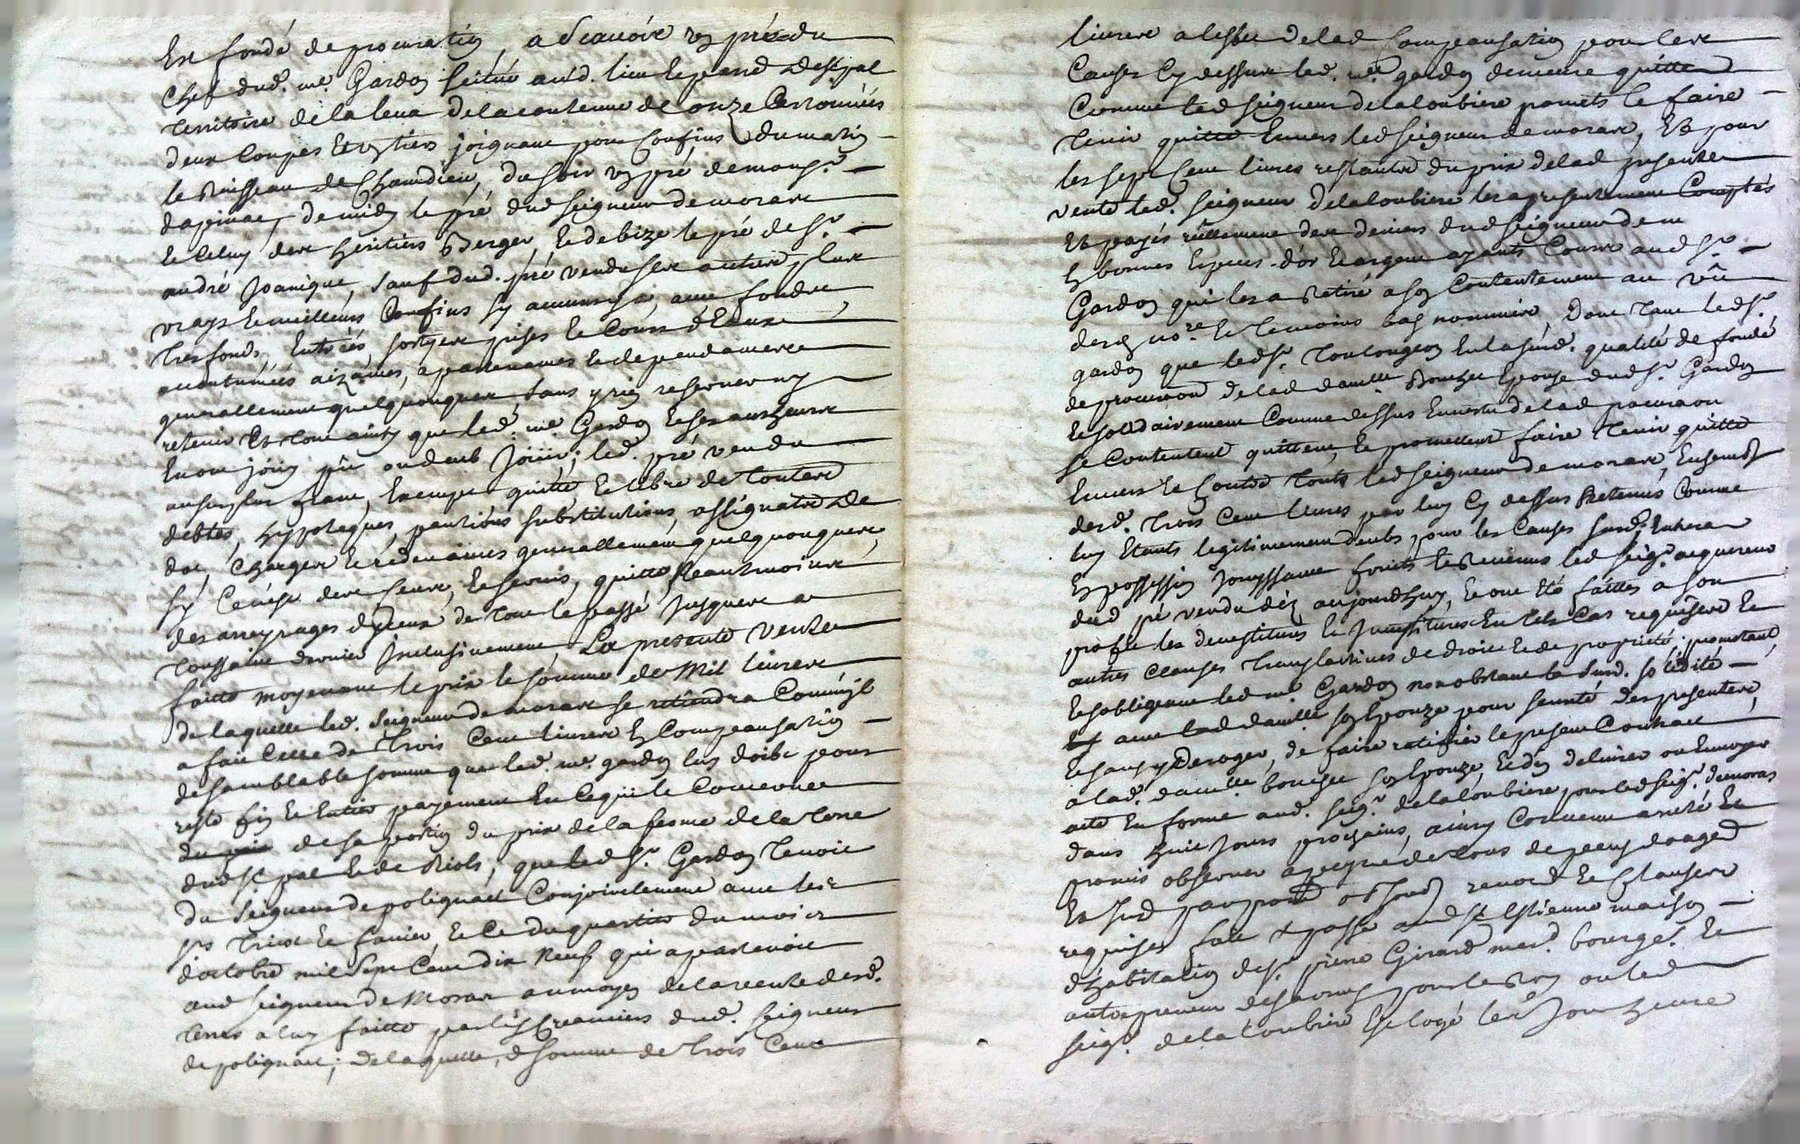 Et fondé de procuration, a scavoir un pré du
chef dud. me. Gardon scitué aud. lieu de st pal
territoire de la leua de la contenue de onze cartonnées
deux coupes et un tiers joignant pour confins du matin
le Ruisseau de Chamdieu, du soir un pré de monsr.
dapinac, de midy le pré dud seigneur de moras
et celuy des heritiers Berger, et de bize le pré de sr.
andré Joanique, sauf dud. pré vendu ses autres plus
vrays et meilleurs confins sy aucuns y a avec fonds
tres fonds, Entrées sortyes prises et cours d'Eaux
acoutumées aizames, apartenances et dependances
generallement quelquonques sans y rien reserver ny
retenir et tout ainsy que led. me Gardon et ses autheurs
en ont jouy pû ou deub jouir; led. pré vendu
au surplus franc, exempt quitte et libre de toutes
debtes, hypoteques, pentions substitutions, assignatx de
dot, charges et redevances generallement quelquonques,
sy ce n'est des cens, et servis, quitte neantmoins
des arreyrages d'yceux de tout le passé jusques a
toussaint dernier Inclusivement La presente vente
faitte moyenant le prix et somme de Mil livres
de laquelle led. seigneur de moras se retiendra comm'jl
a fait celle de trois cent livres En compensation
de semblable somme que led. me. gardon luy doibt pour
reste fin et entier payement en ce qui le concerne
de sa portion du prix de la ferme de la terre
dud st pal et de Riols, que led sr. Gardon tenoit
du seigneur de polignac conjointement avec les
srs tricot et fanier, et ce du quatre du mois
d'octobre mil sept cent dix neuf qui apartenoit
aud seigneur de Moras au moyen de la vente desd.
terres a luy faitte par les creanciers dud. seigneur
de polignac; de laquelle d somme de trois cent
livres a l'esfet de lad compensation pour les
causes cy dessus led. me. gardon demeure quitte
comme led seigneur de la loubiere promets le faire
tenir quitte envers led seigneur de moras, Et pour
les sept cent livres restantes du prix de lad presente
vente led. seigneur de la loubiere les a presentement comptés
et payés reellement des deniers dud seigneur de m
En bonnes especes d'or et argent ayants cours aud sr.
Gardon qui les a retiré a son contentement au vû
de nore et temoins bas nommés dont tant led sr.
gardon que led sr. toulougeon en la susd. qualité de fondé
de procuraon de lad damlle Bouchet Epouse dud sr. Gardon
et solidairement comme dessus en vertu de lad procuraon
se contentent quittent, et promettent faire tenir quitte
envers et contre touts led seigneur de moras, Ensemble
desd. trois cent livres par luy cy dessus Retenües comme
luy etants legitimement deubs, pour les causes susd;
Et possession jouyssance fruits et Revenus led seigr. acquereur
dud pré vendu dez aujourdhuy, et ont eté faittes a son
profit les devestitures et Investitures en tels cas requises et
autres clauses translatives de droit et de proprieté; promettant
et s'obligeant led me Gardon nonobstant la susd. solidité
avec lad damlle son Epouze pour seureté des presentes
et sans y deroger, de faire ratiffier le present contract
a lad. damlle bouchet son Epouze, et d'en delivrer ou Envoyer
acte en forme aud. seigr. de la loubiere pour led seigr. de moras
dans huit jours prochains, ainsy convenu arreté et
promis observer a peyne de tous depens domages
requises fait et passé aud st Estienne maison
d'habitation de sr. pierre Girard mard. bourgs. et
entrepreneur des armes pour le Roy ou led
seigr. de la loubiere est logé le jour heure